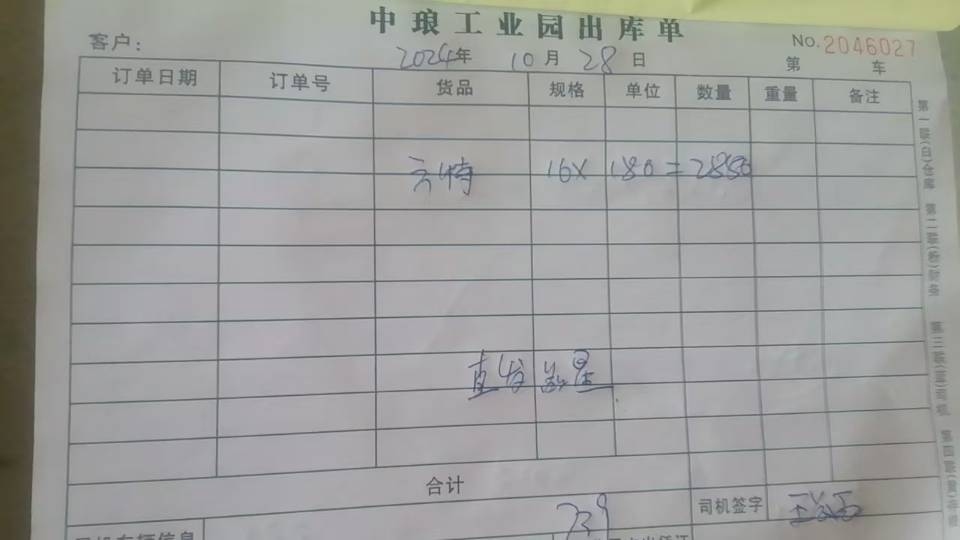 中琅工业园出库单
客户:
2024年 10月 28日
No. 2046027
第 车
订单日期 订单号 货品 规格 单位 数量 重量 备注
16X 180=2880
直发
合计
739
司机签字
第一联(白)仓库
第二联(粉)财务
第三联(蓝)司机